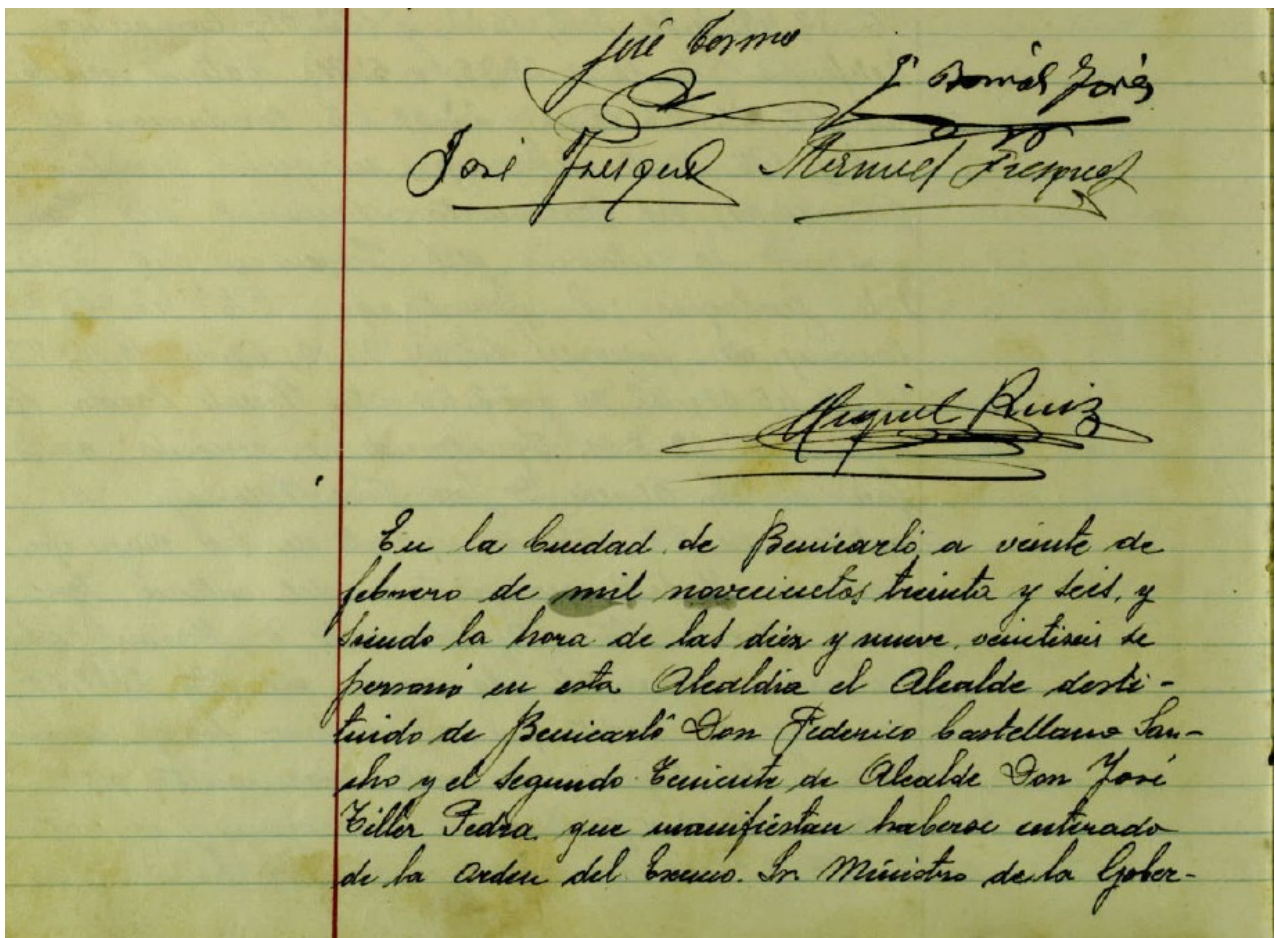 José Tormo
José Fresquet Manuel Fresquet
Miguel Ruiz
En la Ciudad de Benicarló a veinte de
febrero de mil novecientos treinta y seis, y
siendo la hora de las diez y nueve veintiseis se
personó en esta Alcaldia el Alcalde desti-
tuido de Benicarló Don Federico Castellano San-
cho y el Segundo Teniente de Alcalde Don José
Tiller Pedra que manifiestan haberse enterado
de la orden del Excmo. Sr Ministro de la Gober-